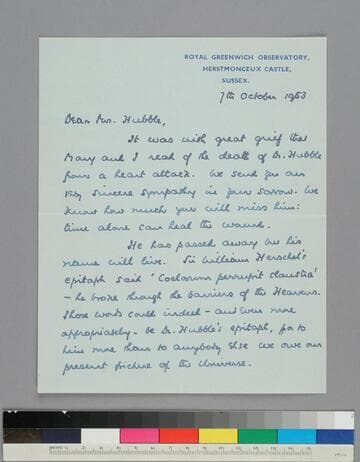 ROYAL GREENWICH OBSERVATORY,
HERSTMONCEUX CASTLE,
SUSSEX.
7th October 1953
Dear Mrs. Hubble,
It was with great grief that
Mary and I read of the death of Dr. Hubble
from a heart attack. We send you our
very sincere sympathy in your sorrow. We
know how much you will miss him:
time alone can heal the wounds.
He has passed away but his
name will live. Sir William Herschel's
epitaph said 'Coelorum perrupit claustra'
- he broke through the barriers of the Heavens.
Those words could indeed - and even more
appropriately - be Dr. Hubble's epitaph, for to
him more than to anybody else we owe our
present picture of the Universe.